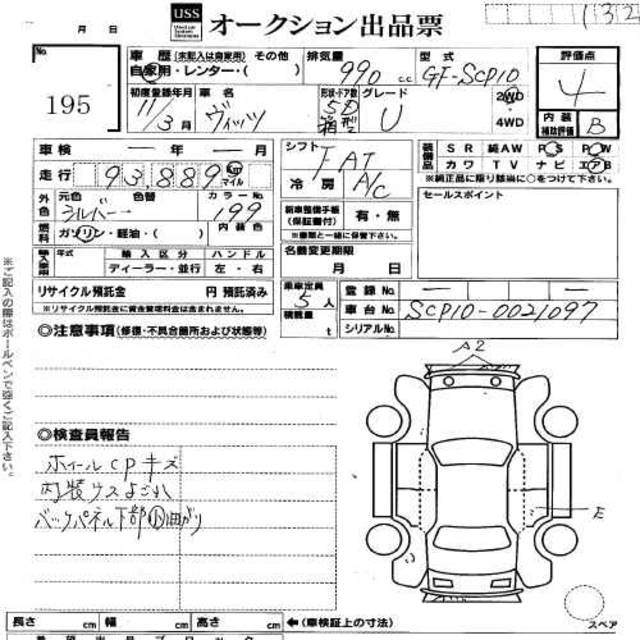 132
月 日
USS オークション出品票
No.
195
車歴 (未記入は自家用) その他
自家用・レンター・( )
排気量
990 cc
型式
GF-SCP10
評価点
4
初度登録年月
11/3月
車名
ヴィッツ
形状・ドア数
5D
箱型
グレード
U
2WD
4WD
内装
補助評価
B
車検 ー 年 ー 月
走行 93,889 Km
マイル
シフト
FAT
冷房
A/C
装備品
SR 純AW PS PW
カワ TV ナビ エアB
※純正品に限り該当に○をつけて下さい。
外色
元色
シルバー
色替
ー
カラーNo.
199
燃料
ガソリン・軽油・( )
内装色
新車整備手帳
(保証書付)
有・無
※書類と一緒に保管下さい。
セールスポイント
輸入車用
年式
輸入区分
ディーラー・並行
ハンドル
左・右
名義変更期限
月 日
リサイクル預託金 円 預託済み
※リサイクル預託金に資金管理料金は含まれません。
乗車定員
5人
積載量
t
登録No. ー ー
車台No. SCP10-0021097
シリアルNo.
◎注意事項(修復・不具合箇所および状態等)
A2
◎検査員報告
ホイールCPキズ
内装ウスよごれ
バックパネル下部小曲がり
E
スペア
長さ cm 幅 cm 高さ cm ←(車検証上の寸法)
※ご記入の際はボールペンで強くご記入下さい。